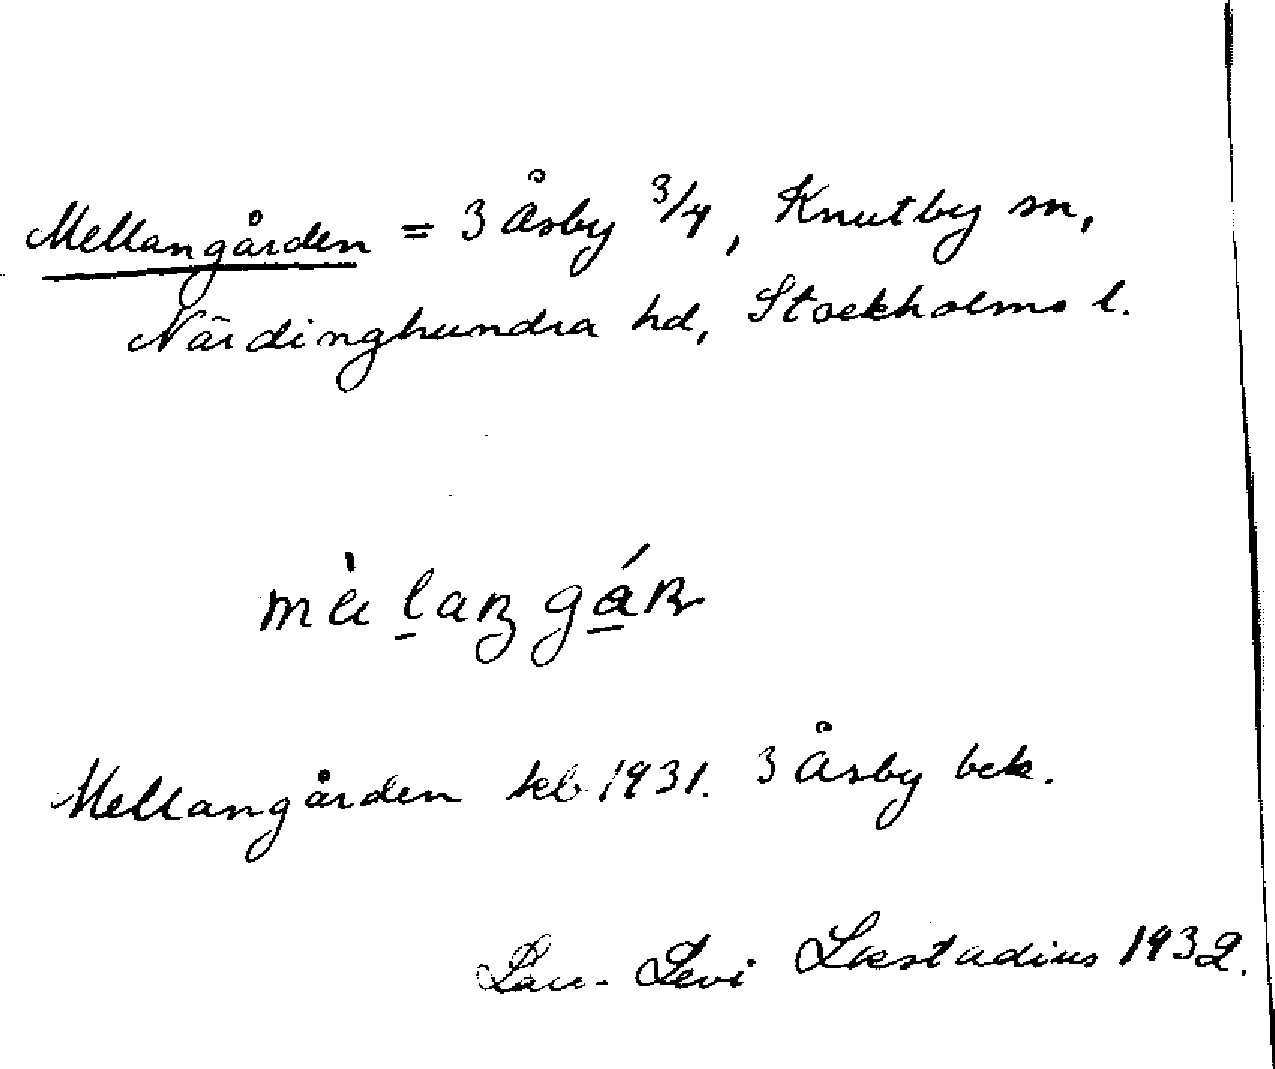 Mellangården = 3 Åsby 3/4, Knutby sn,
Närdinghundra hd, Stockholms l.
Mellangården kb 1931. 3 Åsby bck.
Lars-Levi Læstadius 1932.